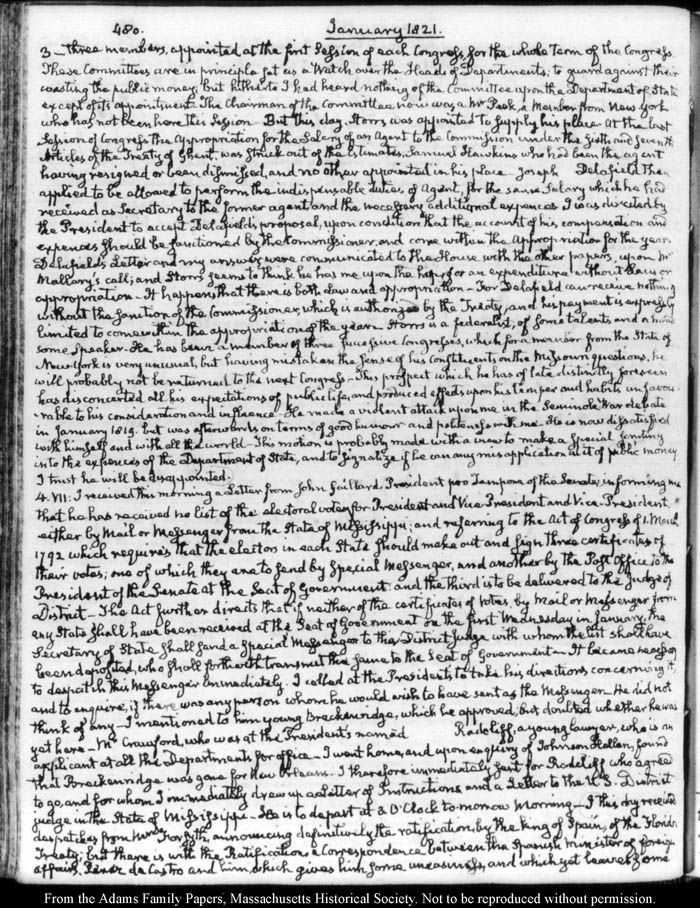 480. January 1821.
3 — three members, appointed at the first Session of each Congress for the whole Term of the Congress.
These Committees are in principle set as a Watch over the Heads of Departments, to guard against their
wasting the public money; but hitherto I had heard nothing of the Committee upon the Department of State
except of its appointment. The Chairman of the Committee now was a Mr Peek, a Member from New York
who has not been here this Session — But this day, Storrs was appointed to supply his place. At the last
Session of Congress the Appropriation for the Salary of an Agent to the Commission under the sixth and seventh
Articles of the Treaty of Ghent, was struck out of the Estimates, Samuel Hawkins who had been the agent
having resigned or been dismissed, and no other appointed in his place. Joseph Delafield then
applied to be allowed to perform the indispensable duties of Agent, for the same Salary which he had
received as Secretary to the former agent, and the necessary additional expences. I was directed by
the President to accept Delafield's proposal, upon condition that the account of his compensation and
expences should be sanctioned by the Commissioner, and come within the Appropriation for the year.
Delafield's Letter and my answer were communicated to the House with the other papers, upon Mr
Mallory's call; and Storrs seems to think he has me upon the hip, for an expenditure without Law or
appropriation — It happens that there is both Law and appropriation — For Delafield can receive nothing
without the sanction of the Commissioner, which is authorized by the Treaty, and his payment is expressly
limited to come within the appropriation of the year. Storrs is a federalist, of some talents, and a
some speaker. He has been a member of three successive Congresses, which for a member from the State of
New York is very unusual, but having mistaken the sense of his Constituents, on the Missouri questions, he
will probably not be returned to the next Congress — This prospect which he has of late distinctly foreseen
has disconcerted all his expectations of public life, and produced effects upon his temper and habits unfavou-
-rable to his consideration and influence. He made a violent attack upon me in the Seminole War debate
in January 1819. but was afterwards on terms of good humour and politeness with me. He is now dissatisfied
with himself and with all the world — This motion is probably made with a view to make a special scrutiny
into the expences of the Department of State, and to signalize if he can any misapplication in it of public money
I trust he will be disappointed.
4. VII: I received this morning a Letter from John Gaillard, President pro Tempore of the Senate; informing me
that he has received no list of the electoral votes for President and Vice-President and Vice-President,
either by Mail or Messenger from the State of Mississippi; and referring to the Act of Congress of 1. March
1792 which requires that the electors in each State should make out and sign Three certificates of
their votes; one of which they are to send by Special Messenger, and another by the Post Office to the
President of the Senate at the Seat of Government: and the third is to be delivered to the Judge of
District — The Act further directs that if neither of the certificates of Votes, by Mail or Messenger from
any State shall have been received at the Seat of Government on the first Wednesday in January, the
Secretary of State shall send a special Messenger to the District Judge with whom the list shall have
been deposited, who shall forthwith transmit the same to the Seat of Government — It became necessary
to despatch this Messenger immediately. I called at the President's to take his directions concerning it,
and to enquire, if there was any person whom he would wish to have sent as the Messenger — He did not
think of any — I mentioned to him young Breckenridge, which he approved, but doubted whether he was
yet here — Mr Crawford, who was at the President's named Radcliff, a young lawyer, who is an
applicant at all the Departments for office — I went home, and upon enquiry of Johnson Hellen, found
that Breckenridge was gone for New Orleans. I therefore immediately sent for Radcliff who agreed
to go, and for whom I immediately drew up a Letter of Instructions, and a Letter to the U.S. District
judge in the State of Mississippi — He is to depart at 3 O'Clock to-morrow Morning — I this day received
despatches from Forsyth, announcing definitively the ratification, by the King of Spain, of the Florida
Treaty; but there is with the Ratification a Correspondence between the Spanish minister of foreign
affairs, Perez de Castro and him, which gives him some uneasiness, and which yet leaves some
From the Adams Family Papers, Massachusetts Historical Society. Not to be reproduced without permission.